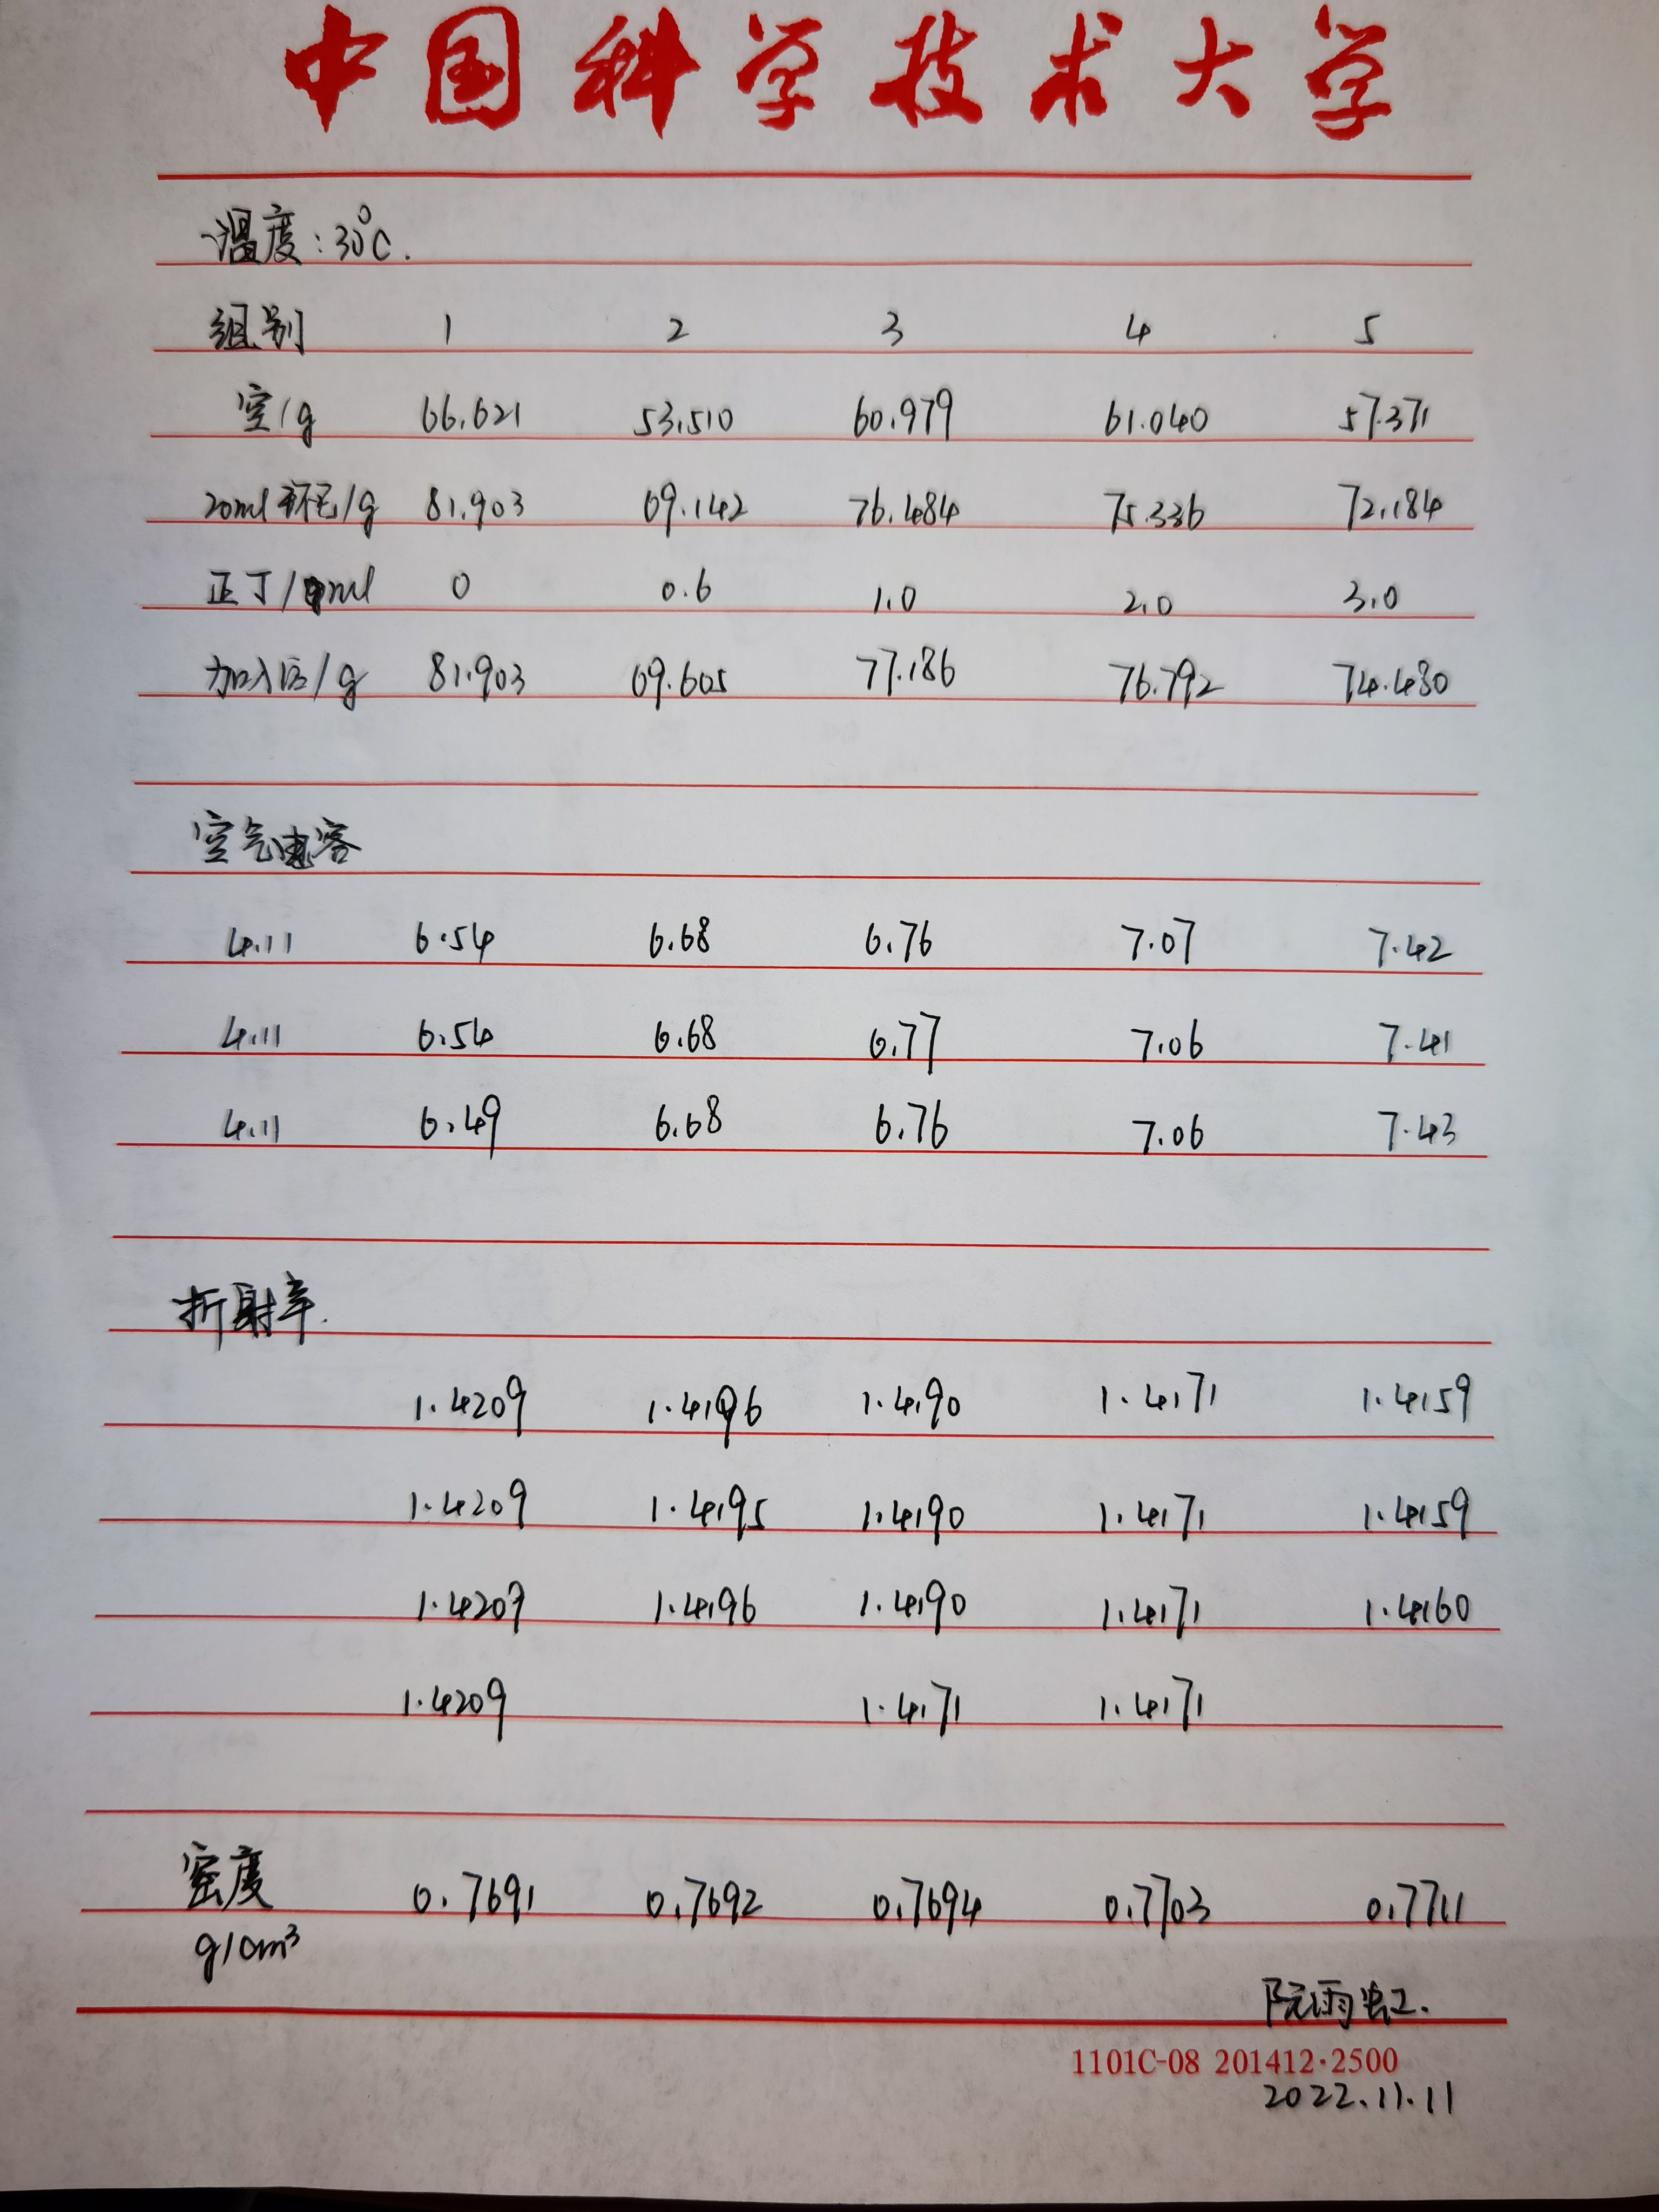 中国科学技术大学
温度:30°C.
组别 1 2 3 4 5
空/g 66.621 53.510 60.979 61.040 57.371
20ml 环己/g 81.903 69.142 76.484 75.336 72.184
正丁/ml 0 0.6 1.0 2.0 3.0
加入后/g 81.903 69.605 77.186 76.792 74.480
空气电容
4.11 6.54 6.68 6.76 7.07 7.42
4.11 6.54 6.68 6.77 7.06 7.41
4.11 6.49 6.68 6.76 7.06 7.43
折射率.
1.4209 1.4196 1.4190 1.4171 1.4159
1.4209 1.4195 1.4190 1.4171 1.4159
1.4209 1.4196 1.4190 1.4171 1.4160
1.4209 1.4171 1.4171
密度 0.7691 0.7692 0.7694 0.7703 0.7711
g/cm³
阮雨虹.
1101C-08 201412·2500
2022.11.11